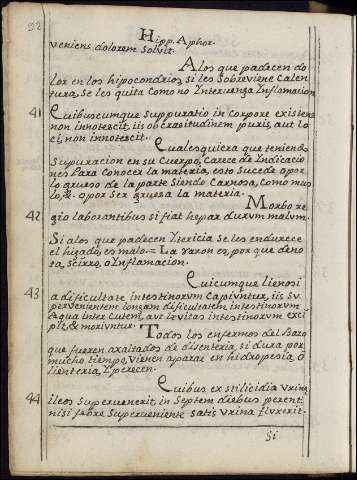 92
Hipp. Aphor.
veniens. dolorem solvit.
Alos que padecen do
lor en los hipocondrios, si les Sobreviene Calen
tura, Se les quita Como no Intervenga Inflamacion
41 Quibuscumque Suppuratio in Corpore existens
non innotescit, iis ob crasitudinem puris, aut lo
ci, non innotescit.
Qualesquiera que teniendo
Supuracion en su Cuerpo, Carece de Indicacio
nes Para Conocer la materia, esto Sucede opor
lo grueso de la parte Siendo Carnosa, Como mus
lo, &. o por Ser gruesa la materia.
Morbo re
42 gio laborantibus si fiat hepar durum malum.
Si alos que padecen Ytericia Se les endurece
el higado, es malo = La raron es, por que deno
ta, Scirro, o Inflamacion.
Quicumque lienosi
43 a dificultate intestinorum Capiuntur, iis Su
pervenientem longam dificultatem intestinorum
Aqua inter Cutem, aut levitas intestinorum exci
pit, & moriuntur.
Todos los enfermos del Bazo
que fueren axaltados de disenteria, si dura por
mucho tiempo, vienen aparar en hidropesia, o
lienteria, Y perecen.
Quibus ex stilicidio Urina
44 ileos Supervenerit, in Septem diebus perent
nisi febre Superveniente satis Urina fluxerit.
Si